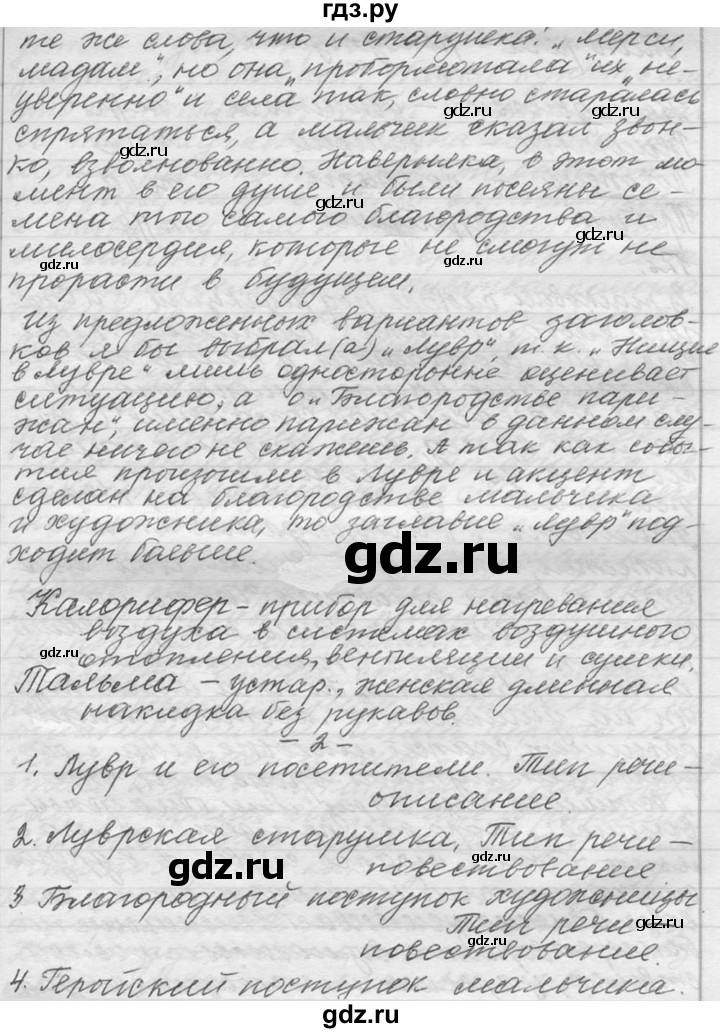 гдз.ру
те же слова, что и старушка: „Мерси,
мадам", но она „пробормотала" их „не-
уверенно" и села так, словно старалась
спрятаться, а мальчик сказал звон-
ко, взволнованно. Наверняка, в этот мо-
мент в его душе и были посеяны се-
мена того самого благородства и
милосердия, которые не смогут не
прорасти в будущем.
Из предложенных вариантов заголов-
ков я бы выбрал(а) „Лувр", т. к. „Нищие
в Лувре" лишь односторонне оценивает
ситуацию, а о „Благородстве пари-
жан", именно парижан в данном слу-
чае ничего не скажешь. А так как собы-
тия произошли в Лувре и акцент
сделан на благородстве мальчика
и художника, то заглавие „Лувр" под-
ходит больше.
Калорифер - прибор для нагревания
воздуха в системах воздушного
отопления, вентиляции и сушки.
Тальма - устар., женская длинная
накидка без рукавов.
- 2 -
1. Лувр и его посетители. Тип речи -
описание.
2. Луврская старушка. Тип речи -
повествование
3 Благородный поступок художницы.
Тип речи -
повествование.
4. Геройский поступок мальчика.
gdz.ru